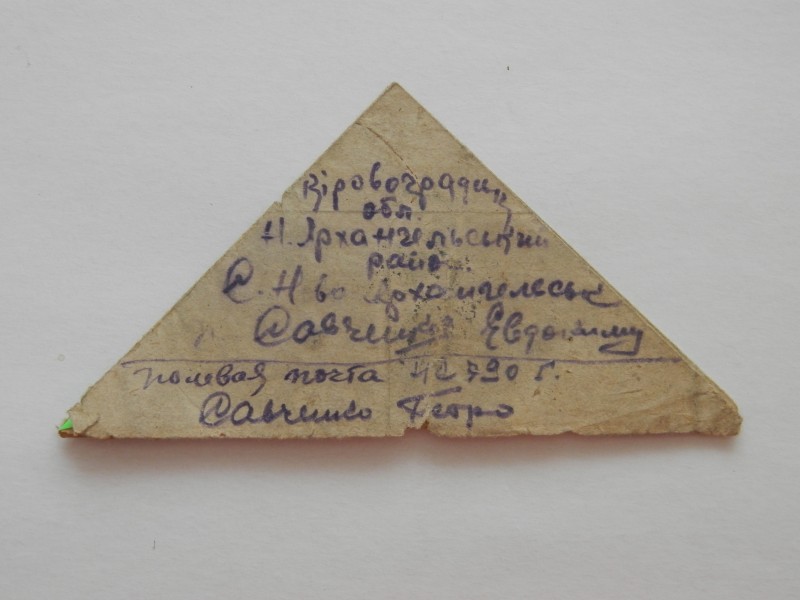 Кіровоградськ
обл.
Н. Архангельський
район.
С. Н во Архангельськ
Савченко Евдокиму
полевая почта 42790 г.
Савченко Петро